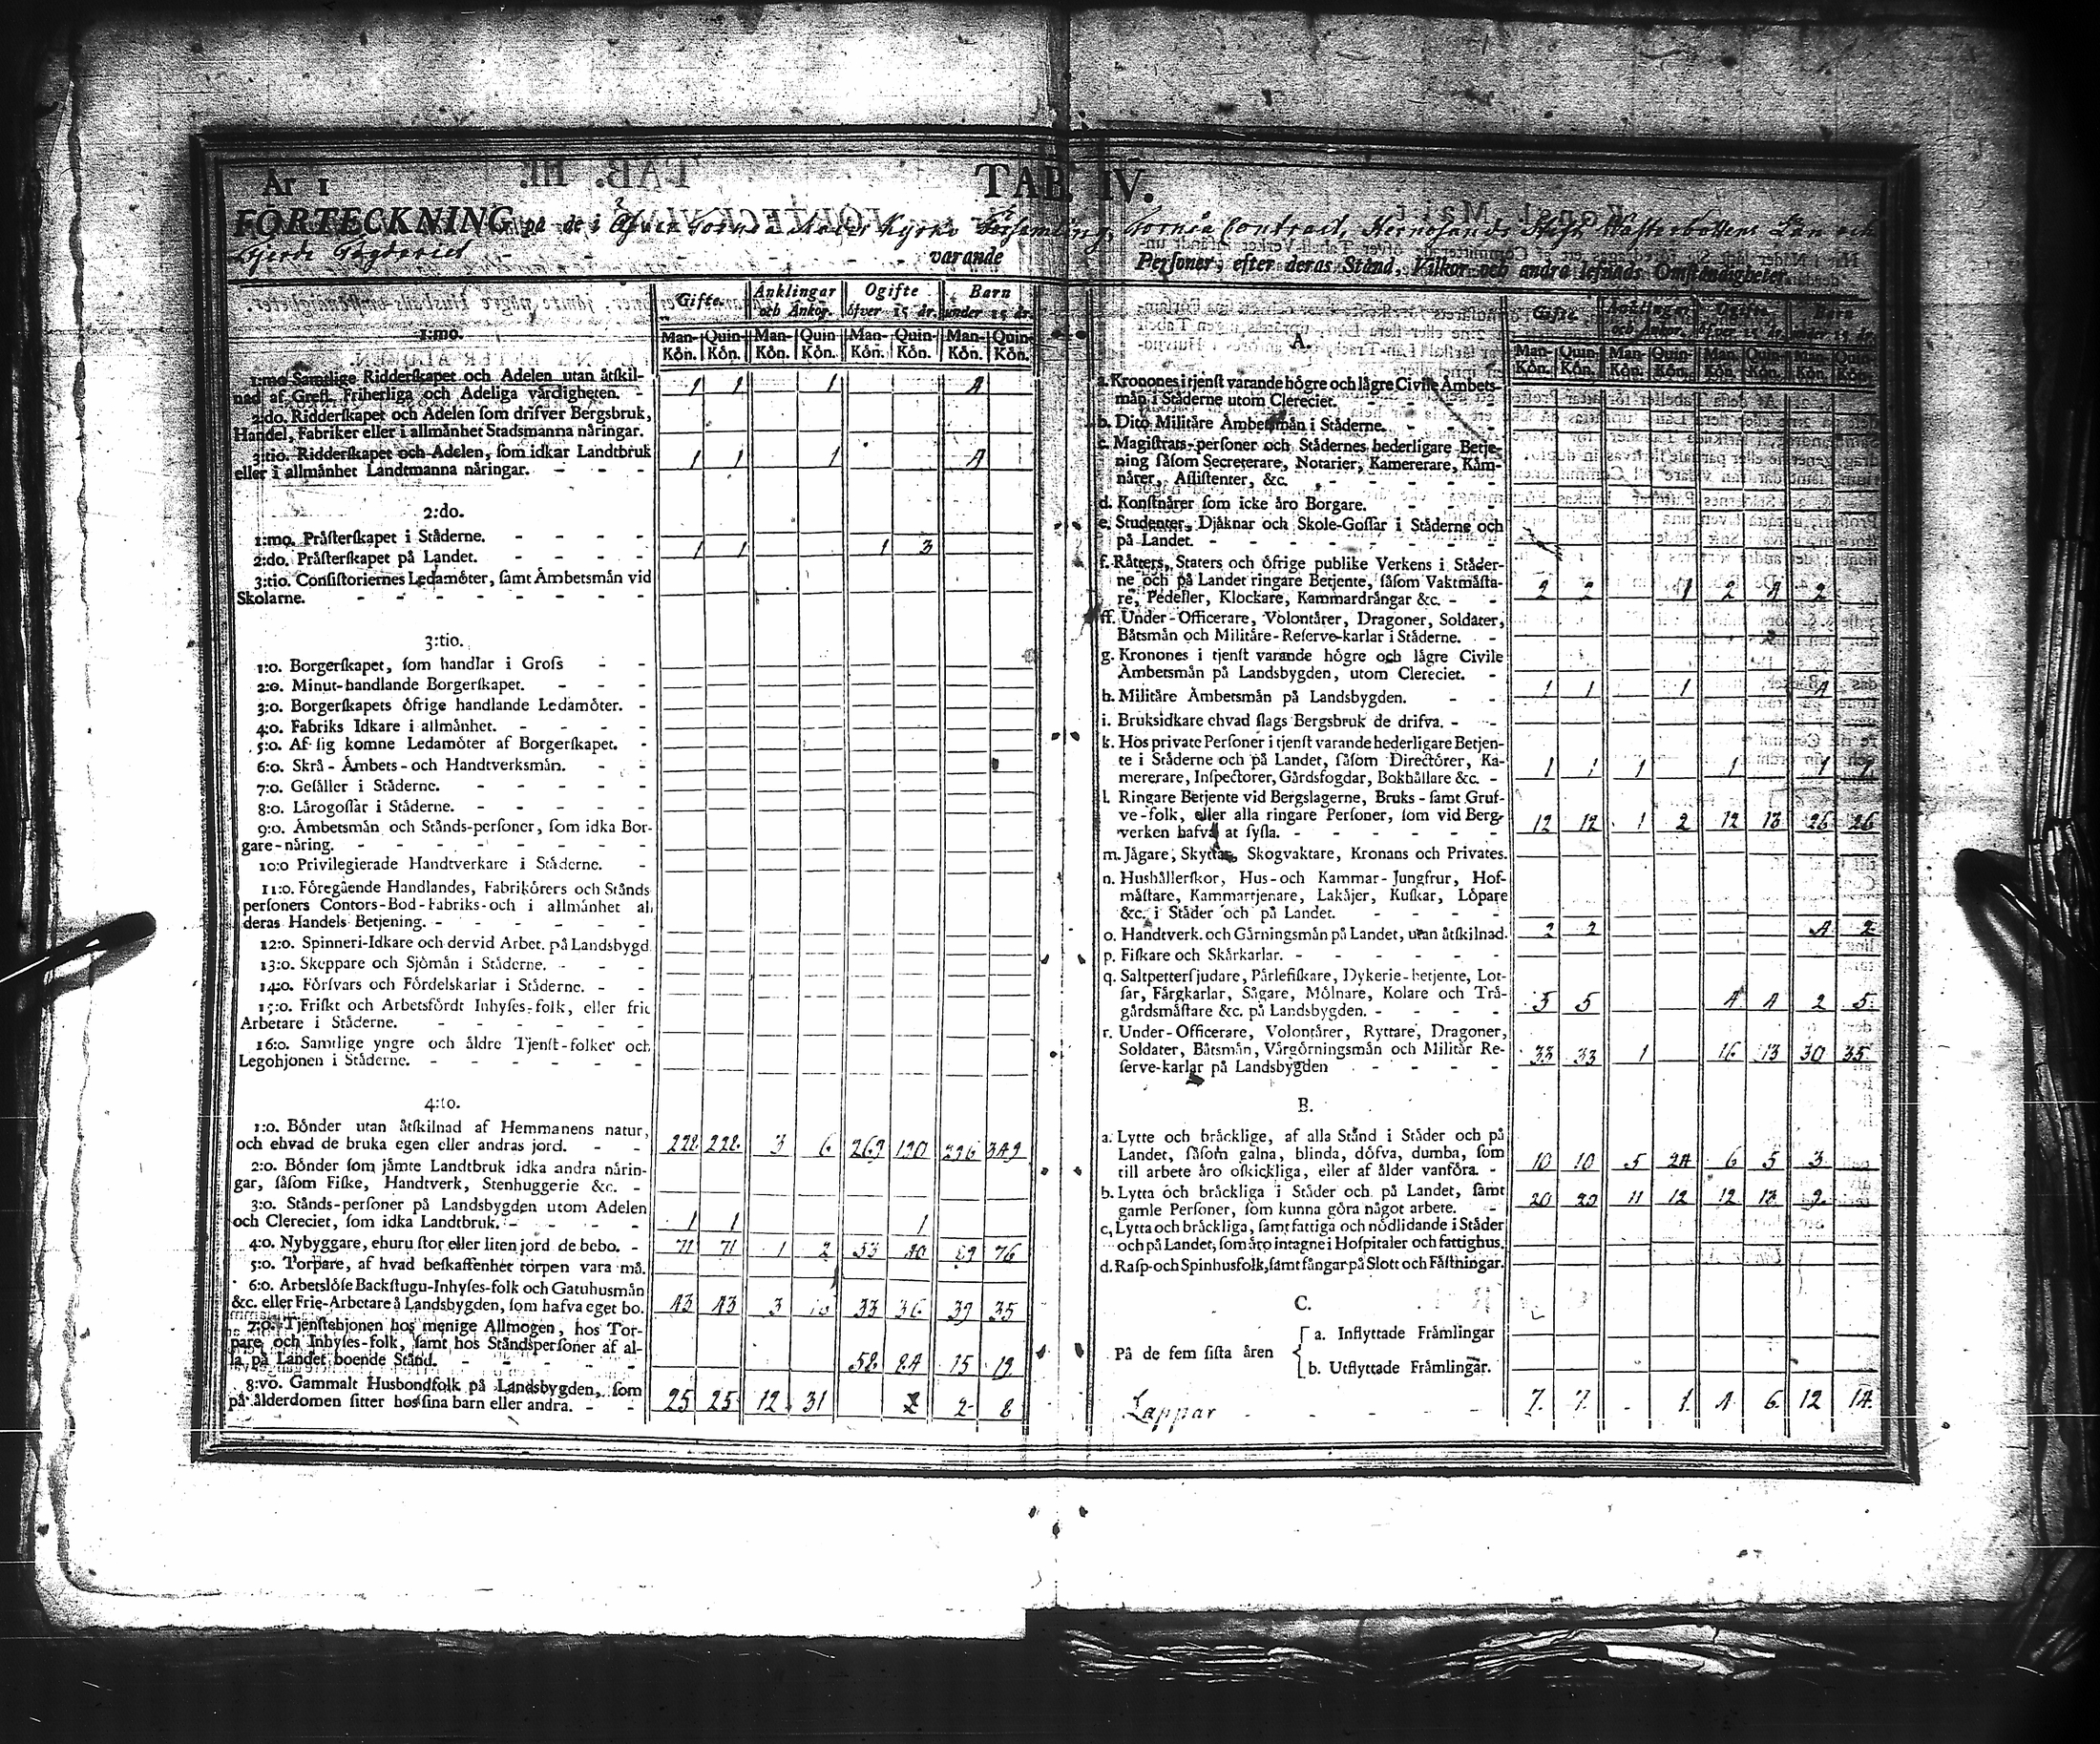 År 1
TAB. IV.
FÖRTECKNING på de i Öfver Torneå Moder Kyrko Församling, Torneå Contract, Hernösands Stift Wästerbottens Län och
Fjerde Fögderiet - - - varande Personer, efter deras Stånd, Vilkor och andra lefnads Omständigheter.
Gifte. Änklingar och Änkor. Ogifte öfver 15 år. Barn under 15 år.
1:mo.
Man-Kön. Quin-Kön. Man-Kön. Quin-Kön. Man-Kön. Quin-Kön. Man-Kön. Quin-Kön.
1:mo Samtlige Ridderſkapet och Adelen utan åtſkil-
nad af Grefl. Friherliga och Adeliga vårdigheten. - 1 1 1 4
2:do. Ridderſkapet och Adelen ſom drifver Bergsbruk,
Handel, Fabriker eller i allmånhet Stadsmanna nåringar.
3:tio. Ridderſkapet och Adelen, ſom idkar Landtbruk
eller i allmånhet Landtmanna nåringar. - - - 1 1 1 4
2:do.
1:mo. Pråſterſkapet i Ståderne. - - - -
2:do. Pråſterſkapet på Landet. - - - - 1 1 1 3
3:tio. Conſiſtoriernes Ledamöter, ſamt Ämbetsmån vid
Skolarne. - - - - - - - -
3:tio.
1:o. Borgerſkapet, ſom handlar i Groſs - -
2:o. Minut-handlande Borgerſkapet. - - -
3:o. Borgerſkapets öfrige handlande Ledamöter. -
4:o. Fabriks Idkare i allmånhet. - - - -
5:o. Af ſig komne Ledamöter af Borgerſkapet. -
6:o. Skrå - Ämbets - och Handtverksmån. - -
7:o. Geſåller i Ståderne. - - - - -
8:o. Lårogoſſar i Ståderne. - - - - -
9:o. Ämbetsmån och Stånds-perſoner, ſom idka Bor-
gare-nåring. - - - - - - - -
10:o Privilegierade Handtverkare i Ståderne. -
11:o. Föregående Handlandes, Fabrikörers och Stånds
perſoners Contors-Bod-Fabriks-och i allmånhet al
deras Handels Betjening. - - - - - -
12:o. Spinneri-Idkare och dervid Arbet. på Landsbygd
13:o. Skeppare och Sjömån i Ståderne. - - -
14:o. Förſvars och Fördelskarlar i Ståderne. - -
15:o. Friſkt och Arbetsfördt Inhyſes-folk, eller frie
Arbetare i Ståderne. - - - - - -
16:o. Samtlige yngre och åldre Tjenſt-folket och
Legohjonen i Ståderne. - - - - - -
4:to.
1:o. Bönder utan åtſkilnad af Hemmanens natur,
och ehvad de bruka egen eller andras jord. - - 228 228 3 6 269 190 296 349
2:o. Bönder ſom jåmte Landtbruk idka andra nårin-
gar, ſåſom Fiſke, Handtverk, Stenhuggerie &c. -
3:o. Stånds-perſoner på Landsbygden utom Adelen
och Clereciet, ſom idka Landtbruk. - - - - 1 1 1
4:o. Nybyggare, ehuru ſtor eller liten jord de bebo. - 71 71 1 2 53 40 89 76
5:o. Torpare, af hvad beſkaffenhet torpen vara må.
6:o. Arbetslöſe Backſtugu-Inhyſes-folk och Gatuhusmån
&c. eller Frie-Arbetare å Landsbygden, ſom hafva eget bo. 43 43 3 10 33 36 39 35
7:o. Tjenſtehjonen hos menige Allmogen, hos Tor-
pare och Inhyſes-folk, ſamt hos Ståndsperſoner af al-
la på Landet boende Stånd. - - - - - 58 84 15 19
8:vo. Gammalt Husbondfolk på Landsbygden, ſom
på ålderdomen ſitter hos ſina barn eller andra. - - 25 25 12 31 2 2 8
Gifte. Änklingar och Änkor. Ogifte öfver 15 år. Barn under 15 år.
A.
Man-Kön. Quin-Kön. Man-Kön. Quin-Kön. Man-Kön. Quin-Kön. Man-Kön. Quin-Kön.
a. Kronones i tjenſt varande högre och lågre Civile Ämbets-
mån i Ståderne utom Clereciet. - - - -
b. Dito Militåre Ämbetsmån i Ståderne. - - -
c. Magiſtrats-perſoner och Städernes hederligare Betje-
ning ſåſom Secreterare, Notarier, Kamererare, Kåm-
nårer, Aſſiſtenter, &c. - - - - -
d. Konſtnårer ſom icke åro Borgare. - - - -
e. Studenter, Djåknar och Skole-Goſſar i Ståderne och
på Landet. - - - - - - - -
f. Råtters, Staters och öfrige publike Verkens i Ståder-
ne och på Landet ringare Betjente, ſåſom Vaktmåſta-
re, Pedeller, Klockare, Kammardrångar &c. - - 2 2 1 2 4 2
ff. Under-Officerare, Volontårer, Dragoner, Soldater,
Båtsmån och Militåre-Reſerve-karlar i Ståderne. -
g. Kronones i tjenſt varande högre och lågre Civile
Ämbetsmån på Landsbygden, utom Clereciet. -
h. Militåre Ämbetsmån på Landsbygden. - - 1 1 1 4
i. Bruksidkare ehvad ſlags Bergsbruk de drifva. - -
k. Hos private Perſoner i tjenſt varande hederligare Betjen-
te i Ståderne och på Landet, ſåſom Directörer, Ka-
mererare, Inſpectorer, Gårdsfogdar, Bokhållare &c. - 1 1 1 1 1 2
l. Ringare Betjente vid Bergslagerne, Bruks - ſamt Gruf-
ve-folk, eller alla ringare Perſoner, ſom vid Berg-
verken hafva at ſyſla. - - - - - - 12 12 1 2 12 13 26 26
m. Jågare, Skyttar, Skogvaktare, Kronans och Privates.
n. Hushållerſkor, Hus-och Kammar-Jungfrur, Hof-
måſtare, Kammartjenare, Lakåjer, Kuſkar, Löpare
&c. i Ståder och på Landet. - - - -
o. Handtverk. och Gårningsmån på Landet, utan åtſkilnad. 2 2 4 2
p. Fiſkare och Skårkarlar. - - - - - -
q. Saltpetterſjudare, Pårlefiſkare, Dykerie-betjente, Lot-
ſar, Fårgkarlar, Sågare, Mölnare, Kolare och Trå-
gårdsmåſtare &c. på Landsbygden. - - - - 5 5 4 4 2 5
r. Under-Officerare, Volontårer, Ryttare, Dragoner,
Soldater, Båtsmån, Vårgörningsmån och Militår Re-
ſerve-karlar på Landsbygden - - - - 33 33 1 16 13 30 35
B.
a. Lytte och bråcklige, af alla Stånd i Ståder och på
Landet, ſåſom galna, blinda, döfva, dumba, ſom
till arbete åro oſkickliga, eller af ålder vanföra. - 10 10 5 24 6 5 3
b. Lytta och bråckliga i Ståder och på Landet, ſamt
gamle Perſoner, ſom kunna göra något arbete. - 20 20 11 12 12 13 2
c. Lytta och bråckliga, ſamt fattiga och nödlidande i Ståder
och på Landet, ſom åro intagne i Hoſpitaler och fattighus.
d. Raſp-och Spinhusfolk, ſamt fångar på Slott och Fåſtningar.
C.
På de fem ſiſta åren
a. Inflyttade Fråmlingar
b. Utflyttade Fråmlingar.
Lappar - - - - - 7 7 - 1 4 6 12 14